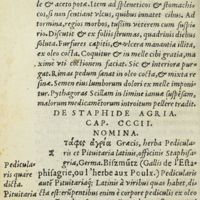 le & aceto pota. Item ad spleneticos & stomachi-
cos, si non sentiant vlcus, quibus innatet cibus. Ad
tormina, regio morbos, tussim veterem cum suspi-
rio. Discutit & ex folijs strumas, quadriduo diebus
soluta. Furfures capitis, & vlcera manantia illitu,
oleo cocta. Coquitur & in melle cibi gratia, ma-
ximè vti coctionem faciat. Sic & interiora pur-
gat. Rimas pedum sanat in oleo cocta, & mixta re-
sina. Semen eius lumborum dolori ex melle imponi-
tur. Pythagoras Scillam in limine ianuæ suspensam,
malorum medicamentorum introitum pellere tradit.
DE STAPHIDE AGRIA.
CAP. CCCII.
NOMINA.
ἀγρία Græcis, herba Pedicula-
ris et Pituitaria latinis, officinis Staphisa-
gria, Germa. Bißmütz (Gallis de l'Esta-
phisagrie, ou l'herbe aux Poulx.) Pedicularis
autē Pituitariāq; Latinis à viribus quas habet, di-
Pedicula-
ris quare
dicta.
Pituitaria